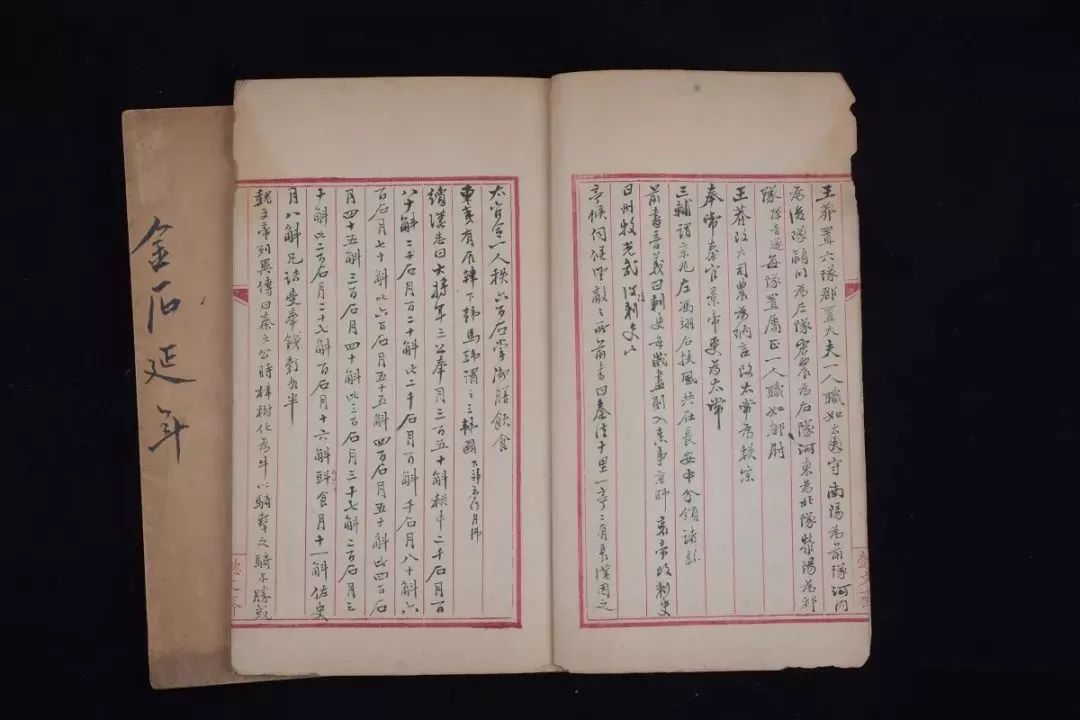 王莽置六隊郡置大夫一人職如太守南陽為前隊河內
為後隊潁川為左隊宏農為右隊河東為兆隊滎陽為祁
隊隊音遂每隊置屬正一人職如都尉
王莽改大司農為納言改太常為秩宗
奉常秦官景帝更為太常
三輔謂京兆左馮翊右扶風共在長安中分領諸縣
前書音義曰刺史每歲盡則入奏事京師哀帝改刺史
曰州牧光武復刺史
亭候伺候望敵之所前書曰秦法十里一亭亭有長漢因之
太官令一人秩六百石掌御膳飲食
東夷有辰韓卞韓馬韓謂之三韓國
續漢志曰大將軍三公奉月三百五十斛秩中二千石月百
八十斛二千石月百二十斛比二千石月百斛千石月八十斛六
百石月七十斛比六百石月五十五斛四百石月五十斛比四百石
月四十五斛三百石月四十斛比三百石月三十七斛二百石月三
十斛比二百石月二十七斛百石月十六斛斗食月十一斛佐史
月八斛凡諸受奉錢穀各半
魏文帝列異傳曰秦文公時梓樹化為牛以騎擊之騎不勝或
金石延年